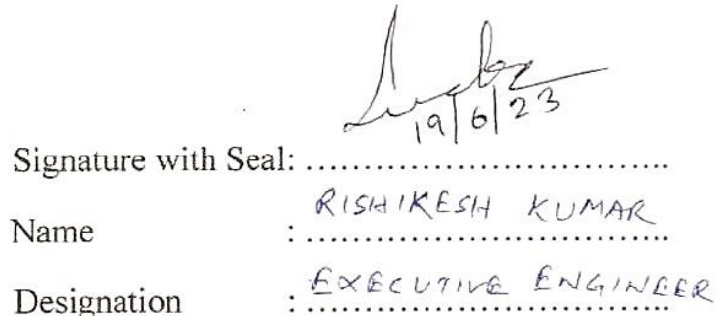 19/6/23
Signature with Seal: ....................................
Name : RISHIKESH KUMAR
Designation : EXECUTIVE ENGINEER